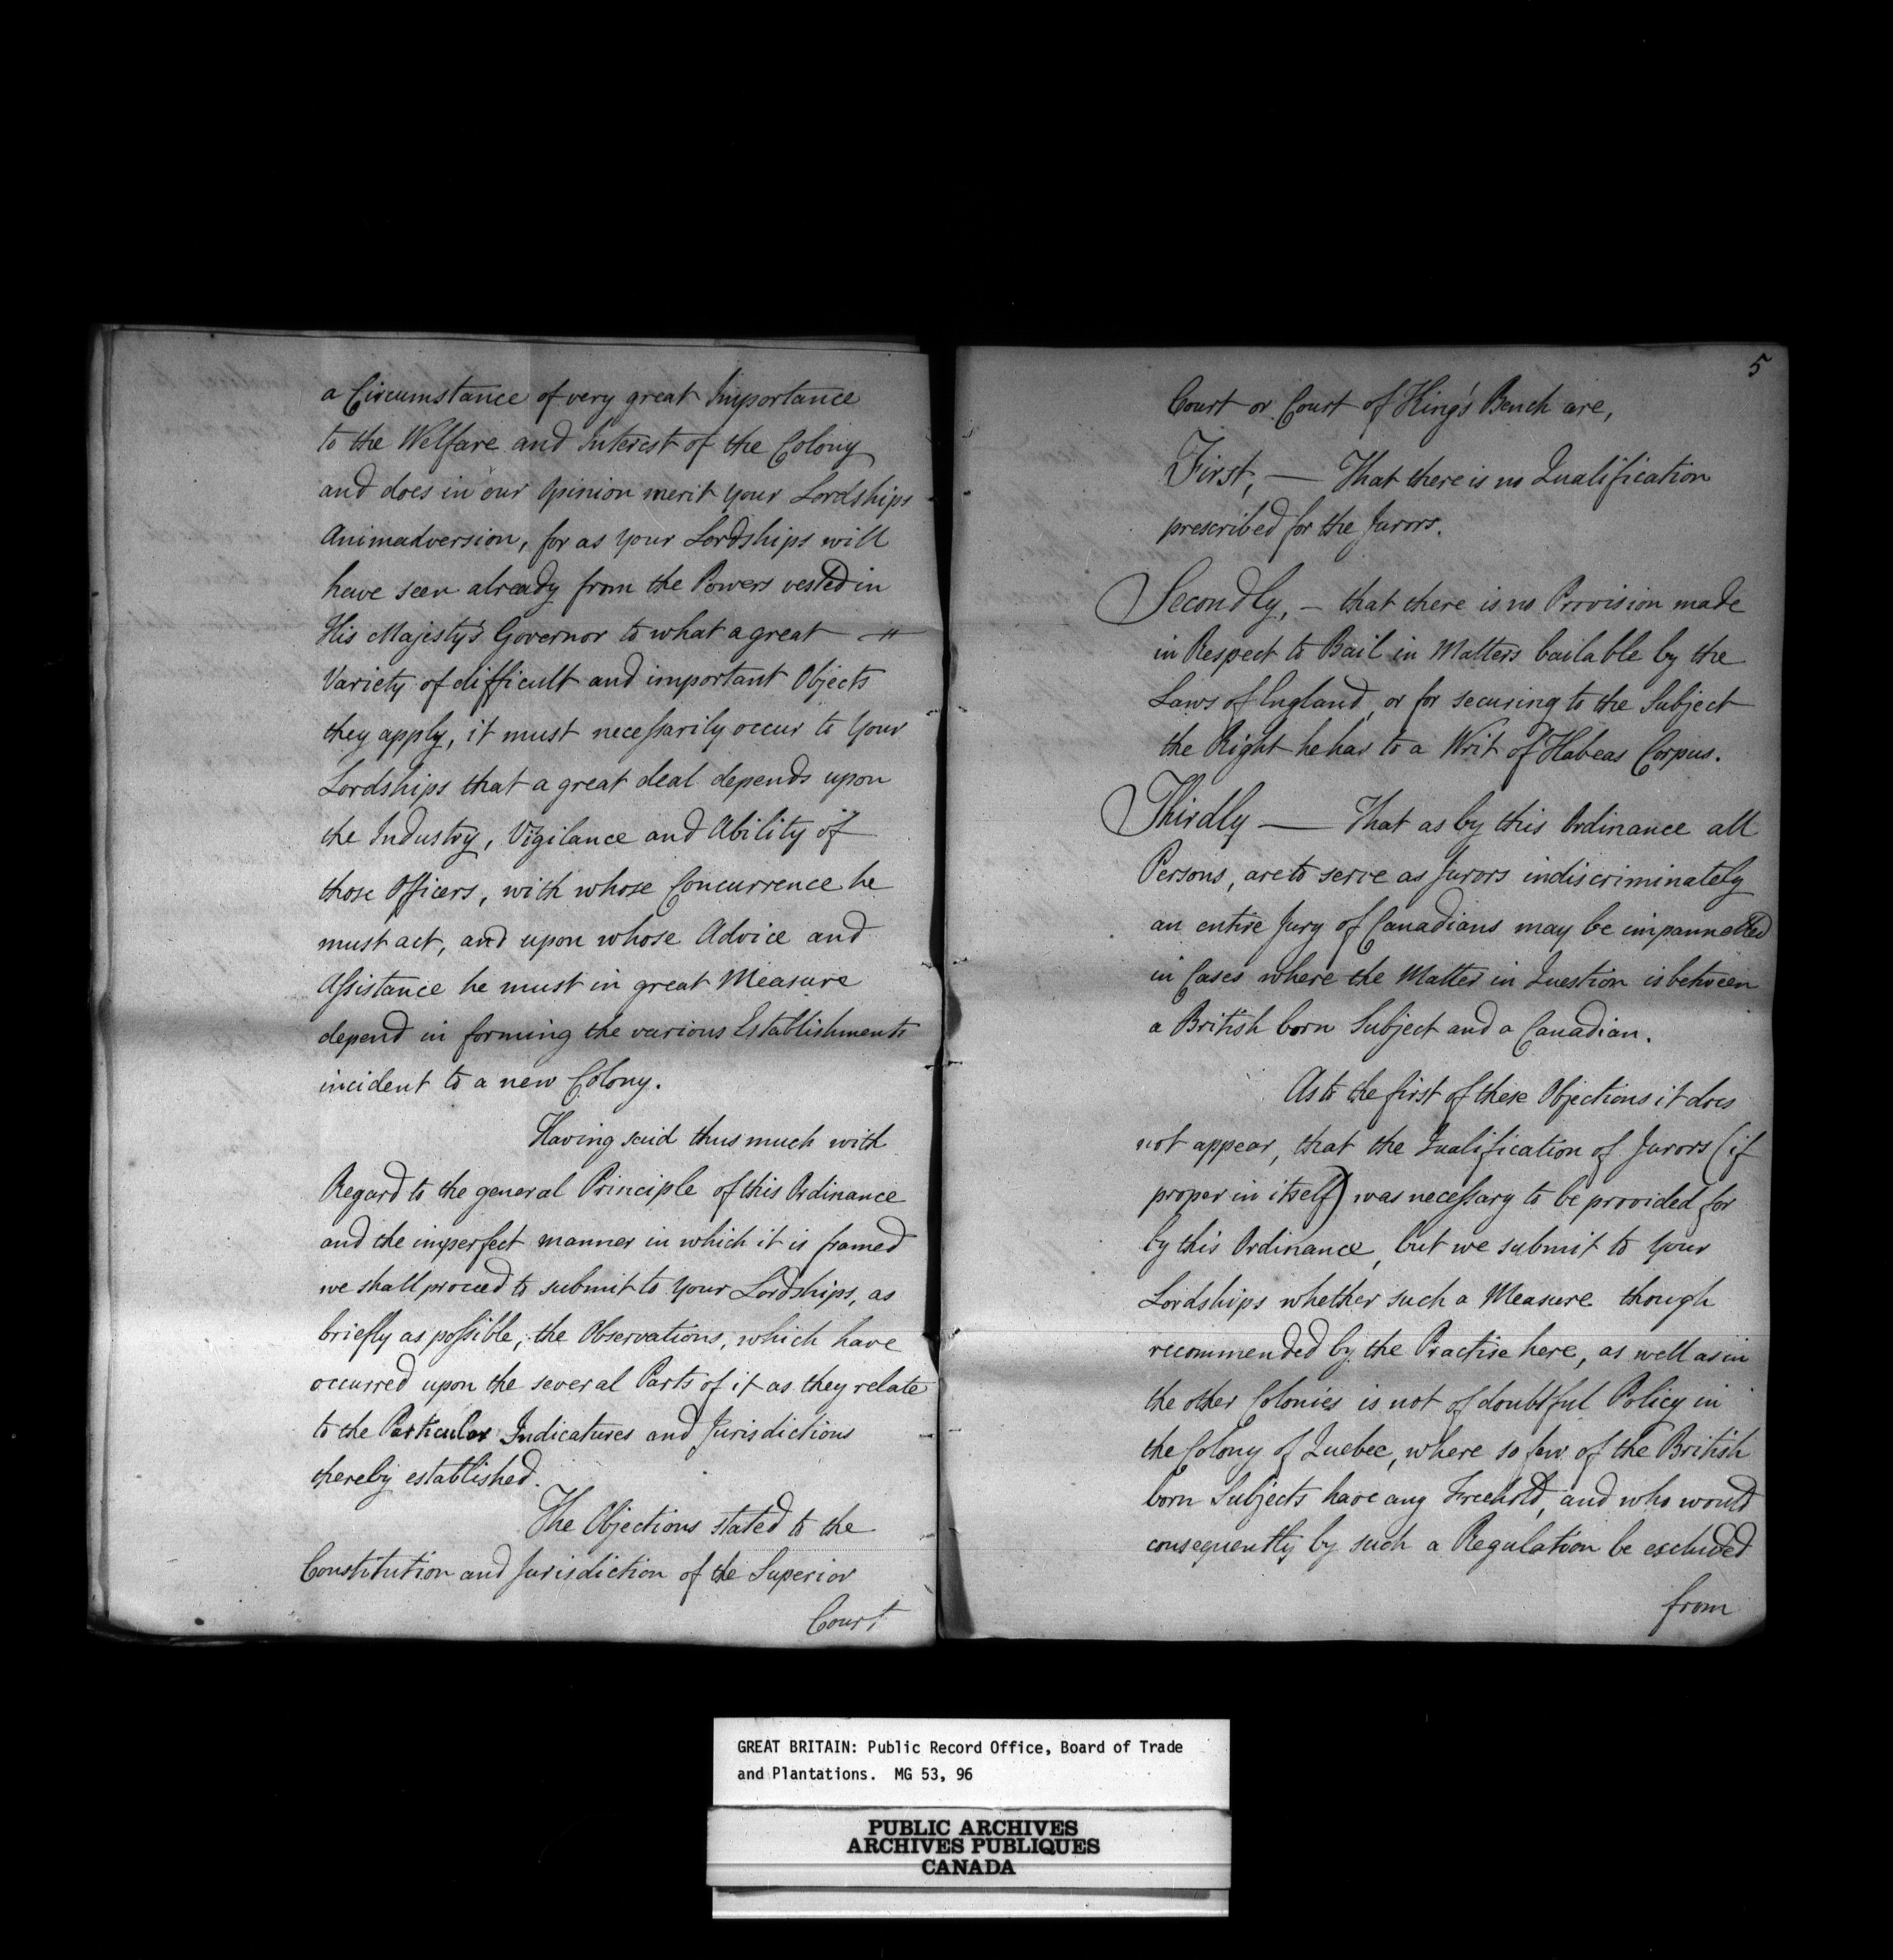 a Circumstance of very great Importance
to the Welfare and Interest of the Colony
and does in our Opinion merit your Lordships
Animadversion, for as your Lordships will
have seen already from the Powers vested in
His Majesty's Governor to what a great
Variety of difficult and important Objects
they apply, it must necessarily occur to your
Lordships that a great deal depends upon
the Industry, Vigilance and Ability of
those Officers, with whose Concurrence he
must act, and upon whose Advice and
Assistance he must in great Measure
depend in forming the various Establishments
incident to a new Colony.
Having said thus much with
Regard to the general Principle of this Ordinance
and the imperfect manner in which it is framed
we shall proceed to submit to your Lordships, as
briefly as possible, the Observations, which have
occurred upon the several Parts of it as they relate
to the Particular Judicatures and Jurisdictions
thereby established.
The Objections stated to the
Constitution and Jurisdiction of the Superior
Court
5
Court or Court of King's Bench are,
First, — That there is no Qualification
prescribed for the Jurors.
Secondly, – that there is no Provision made
in Respect to Bail in Matters bailable by the
Laws of England, or for securing to the Subject
the Right he has to a Writ of Habeas Corpus.
Thirdly — That as by this Ordinance all
Persons, are to serve as Jurors indiscriminately
an entire Jury of Canadians may be impannelled
in Cases where the Matter in Question is between
a British born Subject and a Canadian.
As to the first of these Objections it does
not appear, that the Qualification of Jurors (if
proper in itself) was necessary to be provided for
by this Ordinance, but we submit to your
Lordships whether such a Measure though
recommended by the Practise here, as well as in
the other Colonies is not of doubtful Policy in
the Colony of Quebec, where so few of the British
born Subjects have any Freehold, and who would
consequently by such a Regulation be excluded
from
GREAT BRITAIN: Public Record Office, Board of Trade
and Plantations. MG 53, 96
PUBLIC ARCHIVES
ARCHIVES PUBLIQUES
CANADA